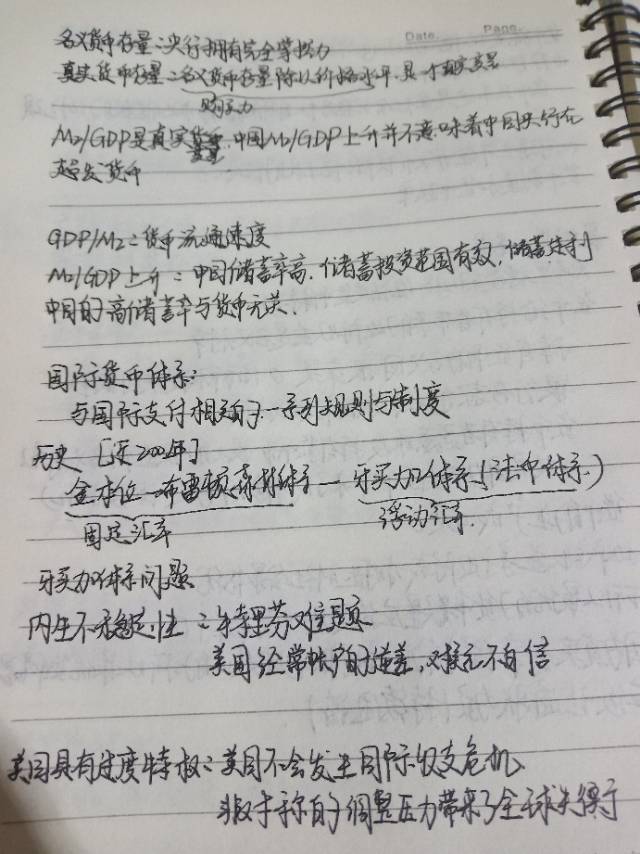 Date. Page.
名义货币存量：央行拥有完全掌控力
真实货币存量：名义货币存量除以价格水平，是一个真实变量
购买力
M₂/GDP是真实货币，中国M₂/GDP上升并不意味着中国央行在
超发货币
GDP/M₂：货币流通速度
M₂/GDP上升：中国储蓄率高，储蓄投资范围有效，储蓄
中国的高储蓄率与货币无关.
国际货币体系：
与国际支付相关的一系列规则与制度
历史 [近200年]
金本位—布雷顿森林体系—牙买加体系(法币体系.)
固定汇率 浮动汇率.
牙买加体系问题
内生不稳定性：特里芬难题
美国经常帐户的逆差，对美元不自信
美国具有过度特权：美国不会发生国际收支危机
非对称的调整压力带来了全球失衡